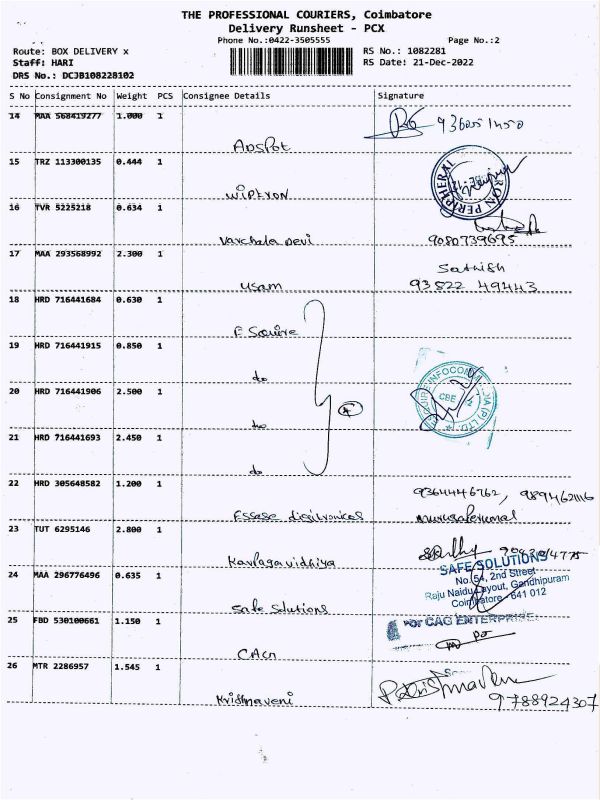 THE PROFESSIONAL COURIERS, Coimbatore
Delivery Runsheet - PCX
Phone No.:0422-3505555 Page No.:2
Route: BOX DELIVERY x RS No.: 1082281
Staff: HARI RS Date: 21-Dec-2022
DRS No.: DCJB108228102
S No Consignment No Weight PCS Consignee Details Signature
14 MAA 568419277 1.000 1
Adspot
15 TRZ 113300135 0.444 1
RON PERIPHERAL
16 TVR 5225218 0.634 1
Varchala Devi 9080739695
17 MAA 293568992 2.300 1 Sathish
Usam 93822 49443
18 HRD 716441684 0.630 1
E Squire
19 HRD 716441915 0.850 1
do
20 HRD 716441906 2.500 1 INFOCOM
CBE
do 4
21 HRD 716441693 2.450 1
do
22 HRD 305648582 1.200 1 9364446762, 9894621116
Essase digitronics Murugaperumal
23 TUT 6295146 2.800 1
Kavlaga vidhiya
24 MAA 296776496 0.635 1 SAFE SOLUTIONS
No.54, 2nd Street
Raju Naidu Layout, Gandhipuram
Coimbatore - 641 012
Safe Solutions
25 FBD 530100661 1.150 1 For CAG ENTERPRISE
CAG
26 MTR 2286957 1.545 1
Krishnaveni 9788924307